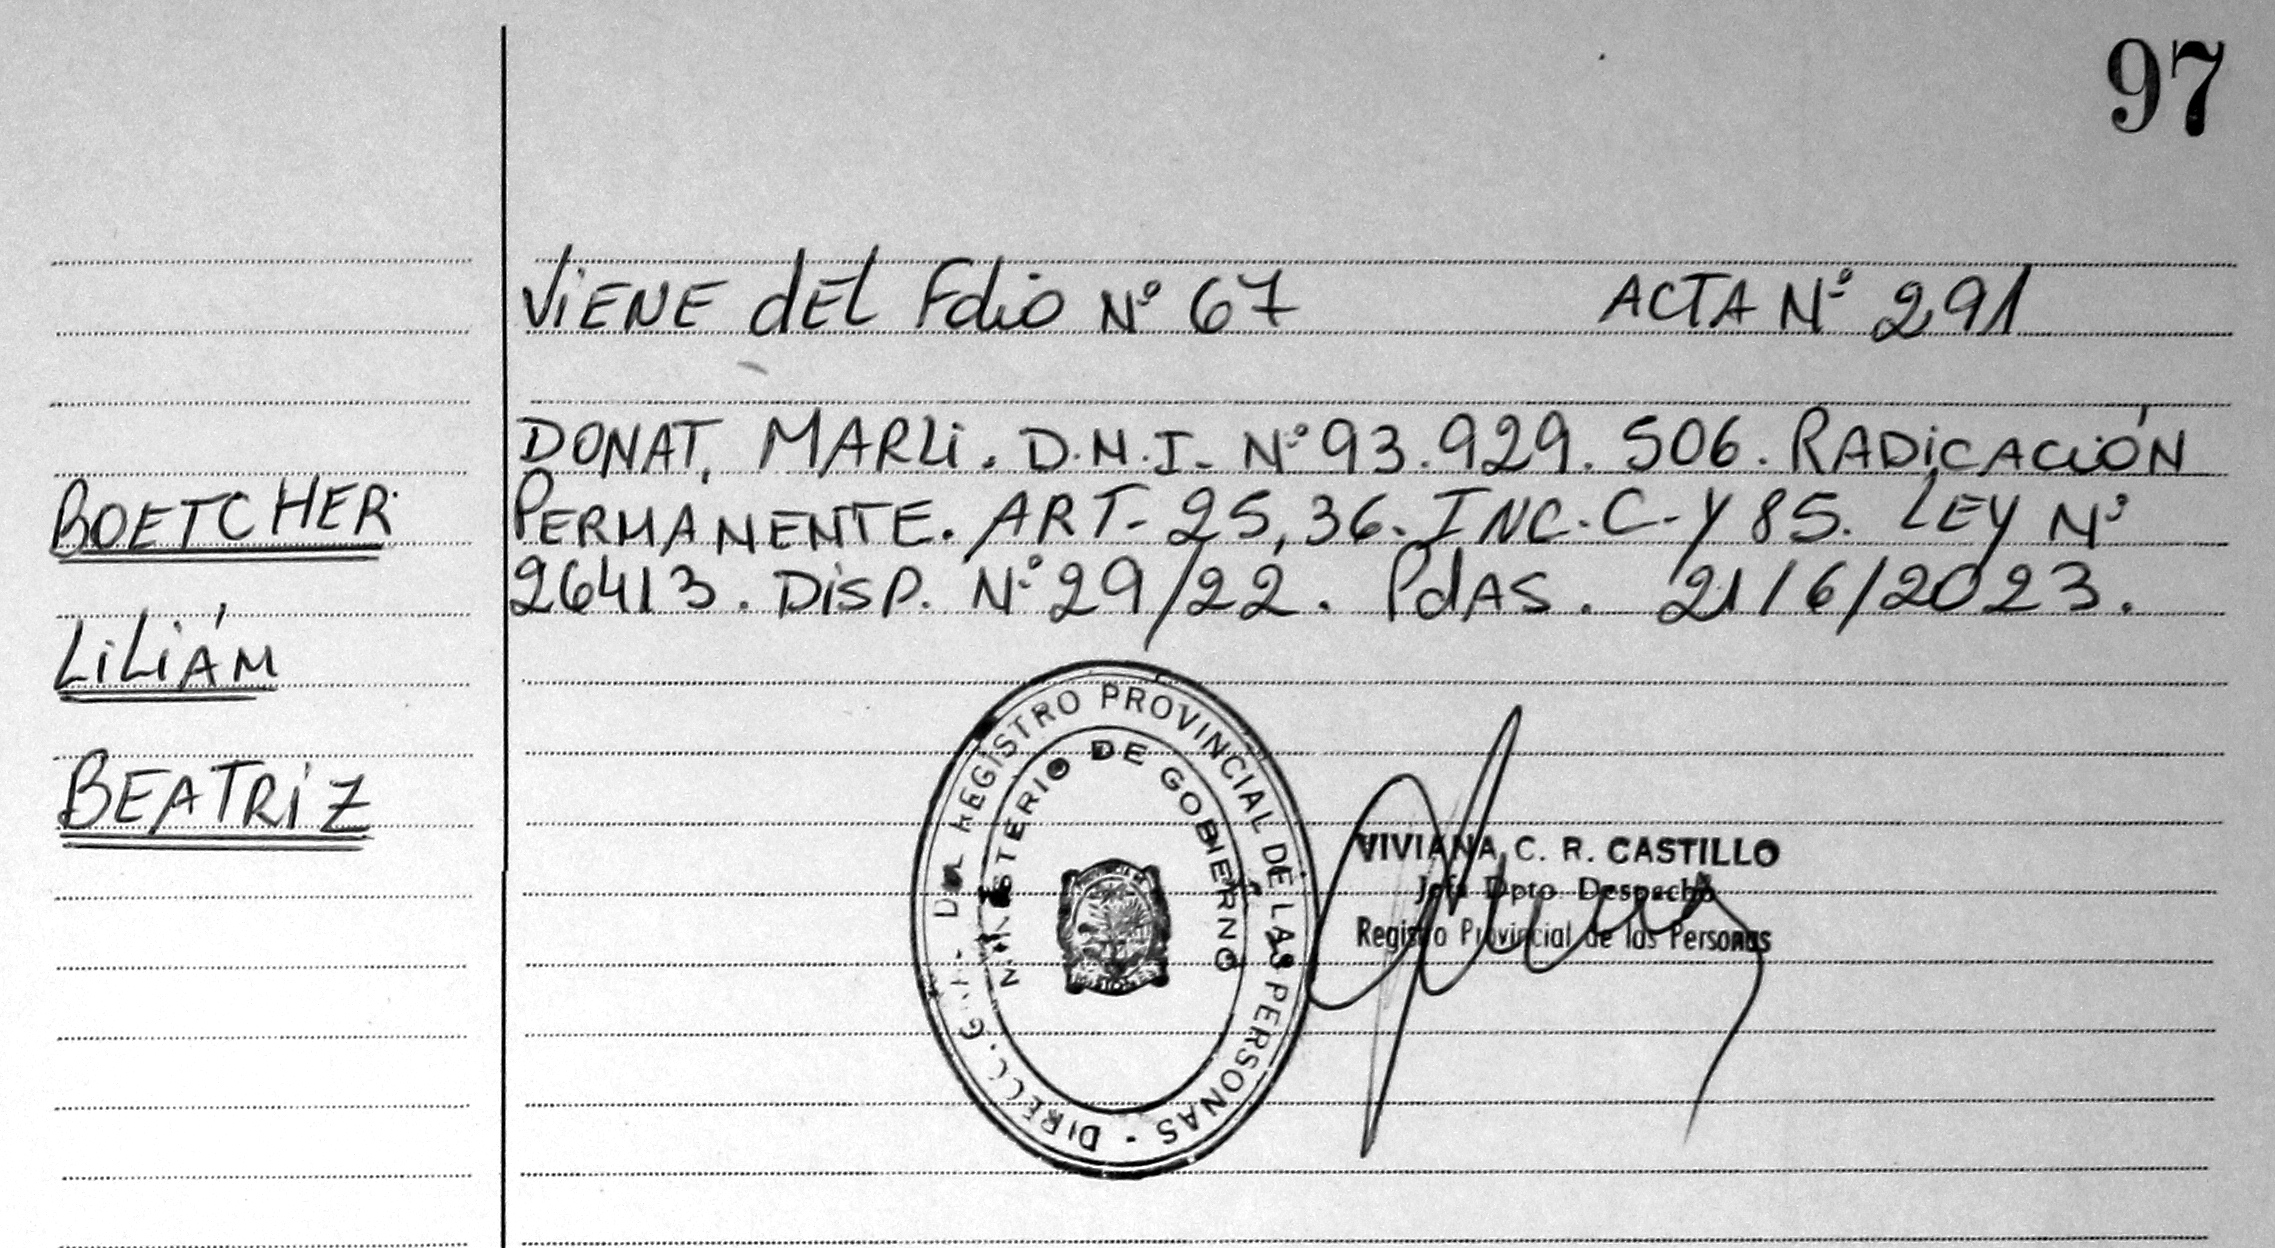 97
ViENE dEL Folio Nº 67 ACTA Nº 291
DONAT, MARLi. D.N.I. Nº 93.929.506. RADiCACiÓN
PERMANENTE. ART. 25, 36. INC. C. Y 85. LEY Nº
26413. DiSP. Nº 29/22. PdAS. 21/6/2023.
BOETCHER
LiLiÁN
BEATRiZ
DIRECC. GRAL. DEL REGISTRO PROVINCIAL DE LAS PERSONAS -
MINISTERIO DE GOBIERNO
VIVIANA C. R. CASTILLO
Jefa Dpto. Despacho
Registro Provincial de las Personas